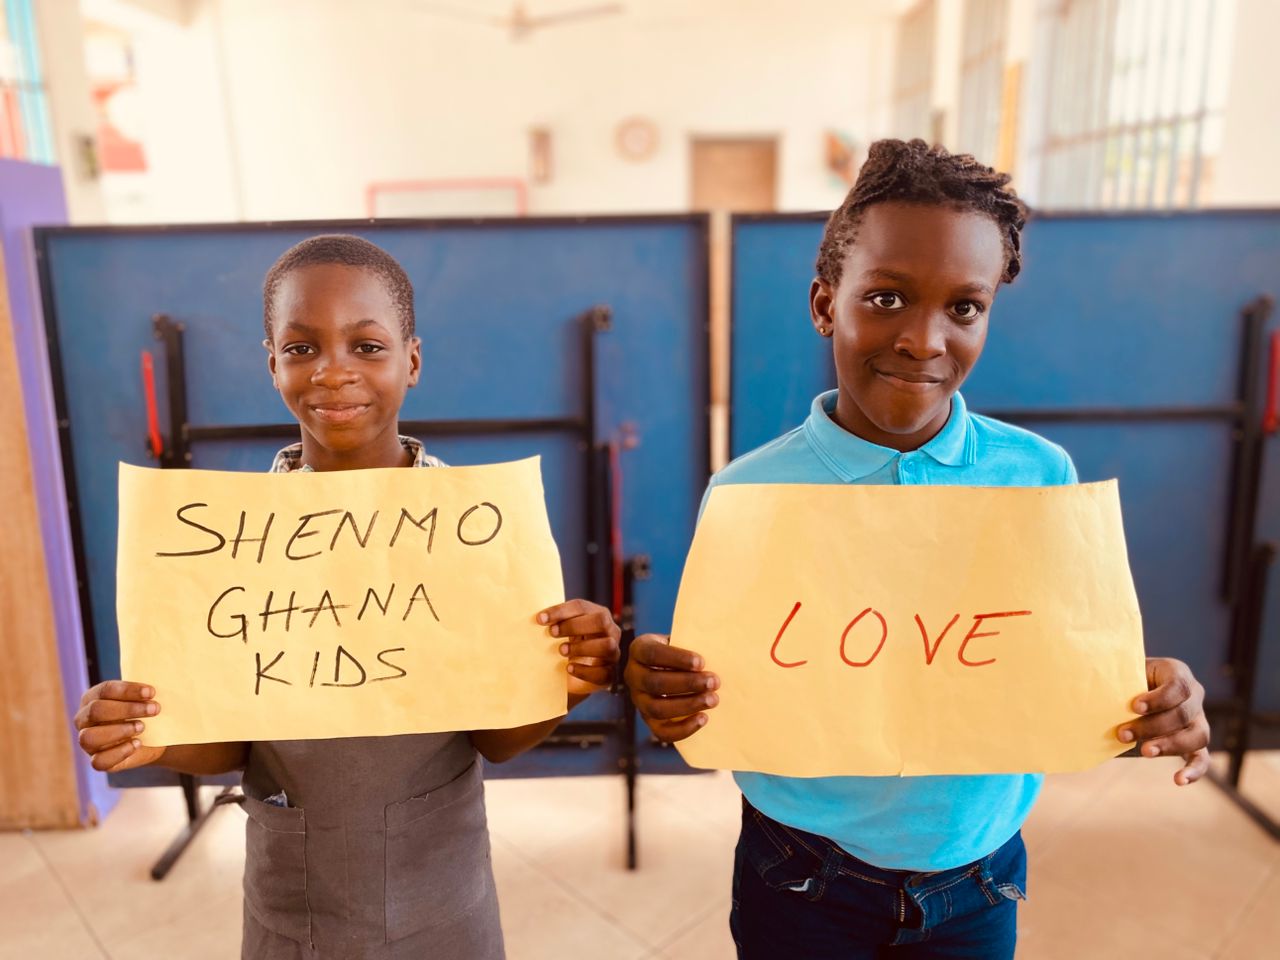 SHENMO
GHANA
KIDS
LOVE